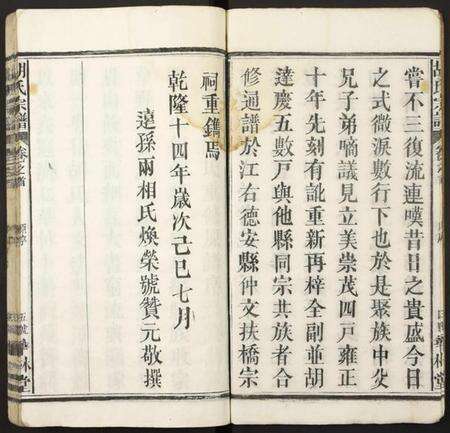 嘗不三復流連嘆昔日之貴盛今日
之式微淚數行下也於是聚族中父
兄子弟嘀議見立美崇茂四戸雍正
十年先刻有訛重新再梓全副並胡
達慶五數戸與他縣同宗共族者合
修通譜於江右德安縣仲文扶橋宗
祠重鐫焉
乾隆十四年歲次己巳七月
遠孫兩相氏煥榮號贊元敬撰
胡氏宗譜
卷之首
華林堂